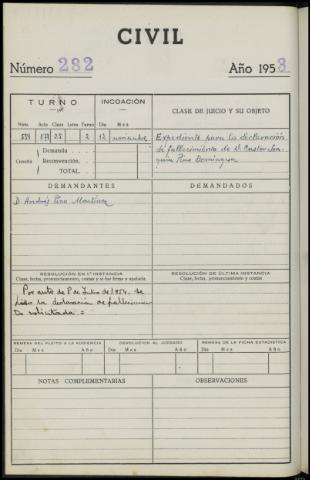 CIVIL
Número 282 Año 1958
TURNO INCOACIÓN CLASE DE JUICIO Y SU OBJETO
Núm. Acto Clase Letra Turno Día Mes
2 12 noviembre Expediente para la declaración
Demanda de fallecimiento de D. Castor Joa-
Cuantía Reconvención quín Pino Domínguez
TOTAL
DEMANDANTES DEMANDADOS
D. Andrés Pino Martínez
RESOLUCIÓN EN 1ª INSTANCIA RESOLUCIÓN DE ÚLTIMA INSTANCIA
Clase, fecha, pronunciamiento, costas y si fué firme o apelada Clase, fecha, pronunciamiento y costas
Por auto de 8 de Julio de 1954. Se
hizo la declaración de fallecimien
to solicitada =
REMESA DEL PLEITO A LA AUDIENCIA DEVOLUCIÓN AL JUZGADO REMESA DE LA FICHA ESTADÍSTICA
Día Mes Año Día Mes Año Día Mes Año
NOTAS COMPLEMENTARIAS OBSERVACIONES